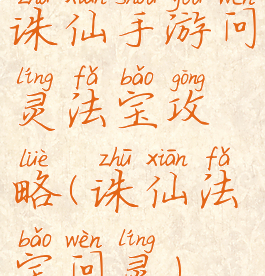 zhū xiān shǒu yóu wèn
诛仙手游问
líng fǎ bǎo gōng
灵法宝攻
lüè zhū xiān fǎ
略(诛仙法
bǎo wèn líng
宝问灵)